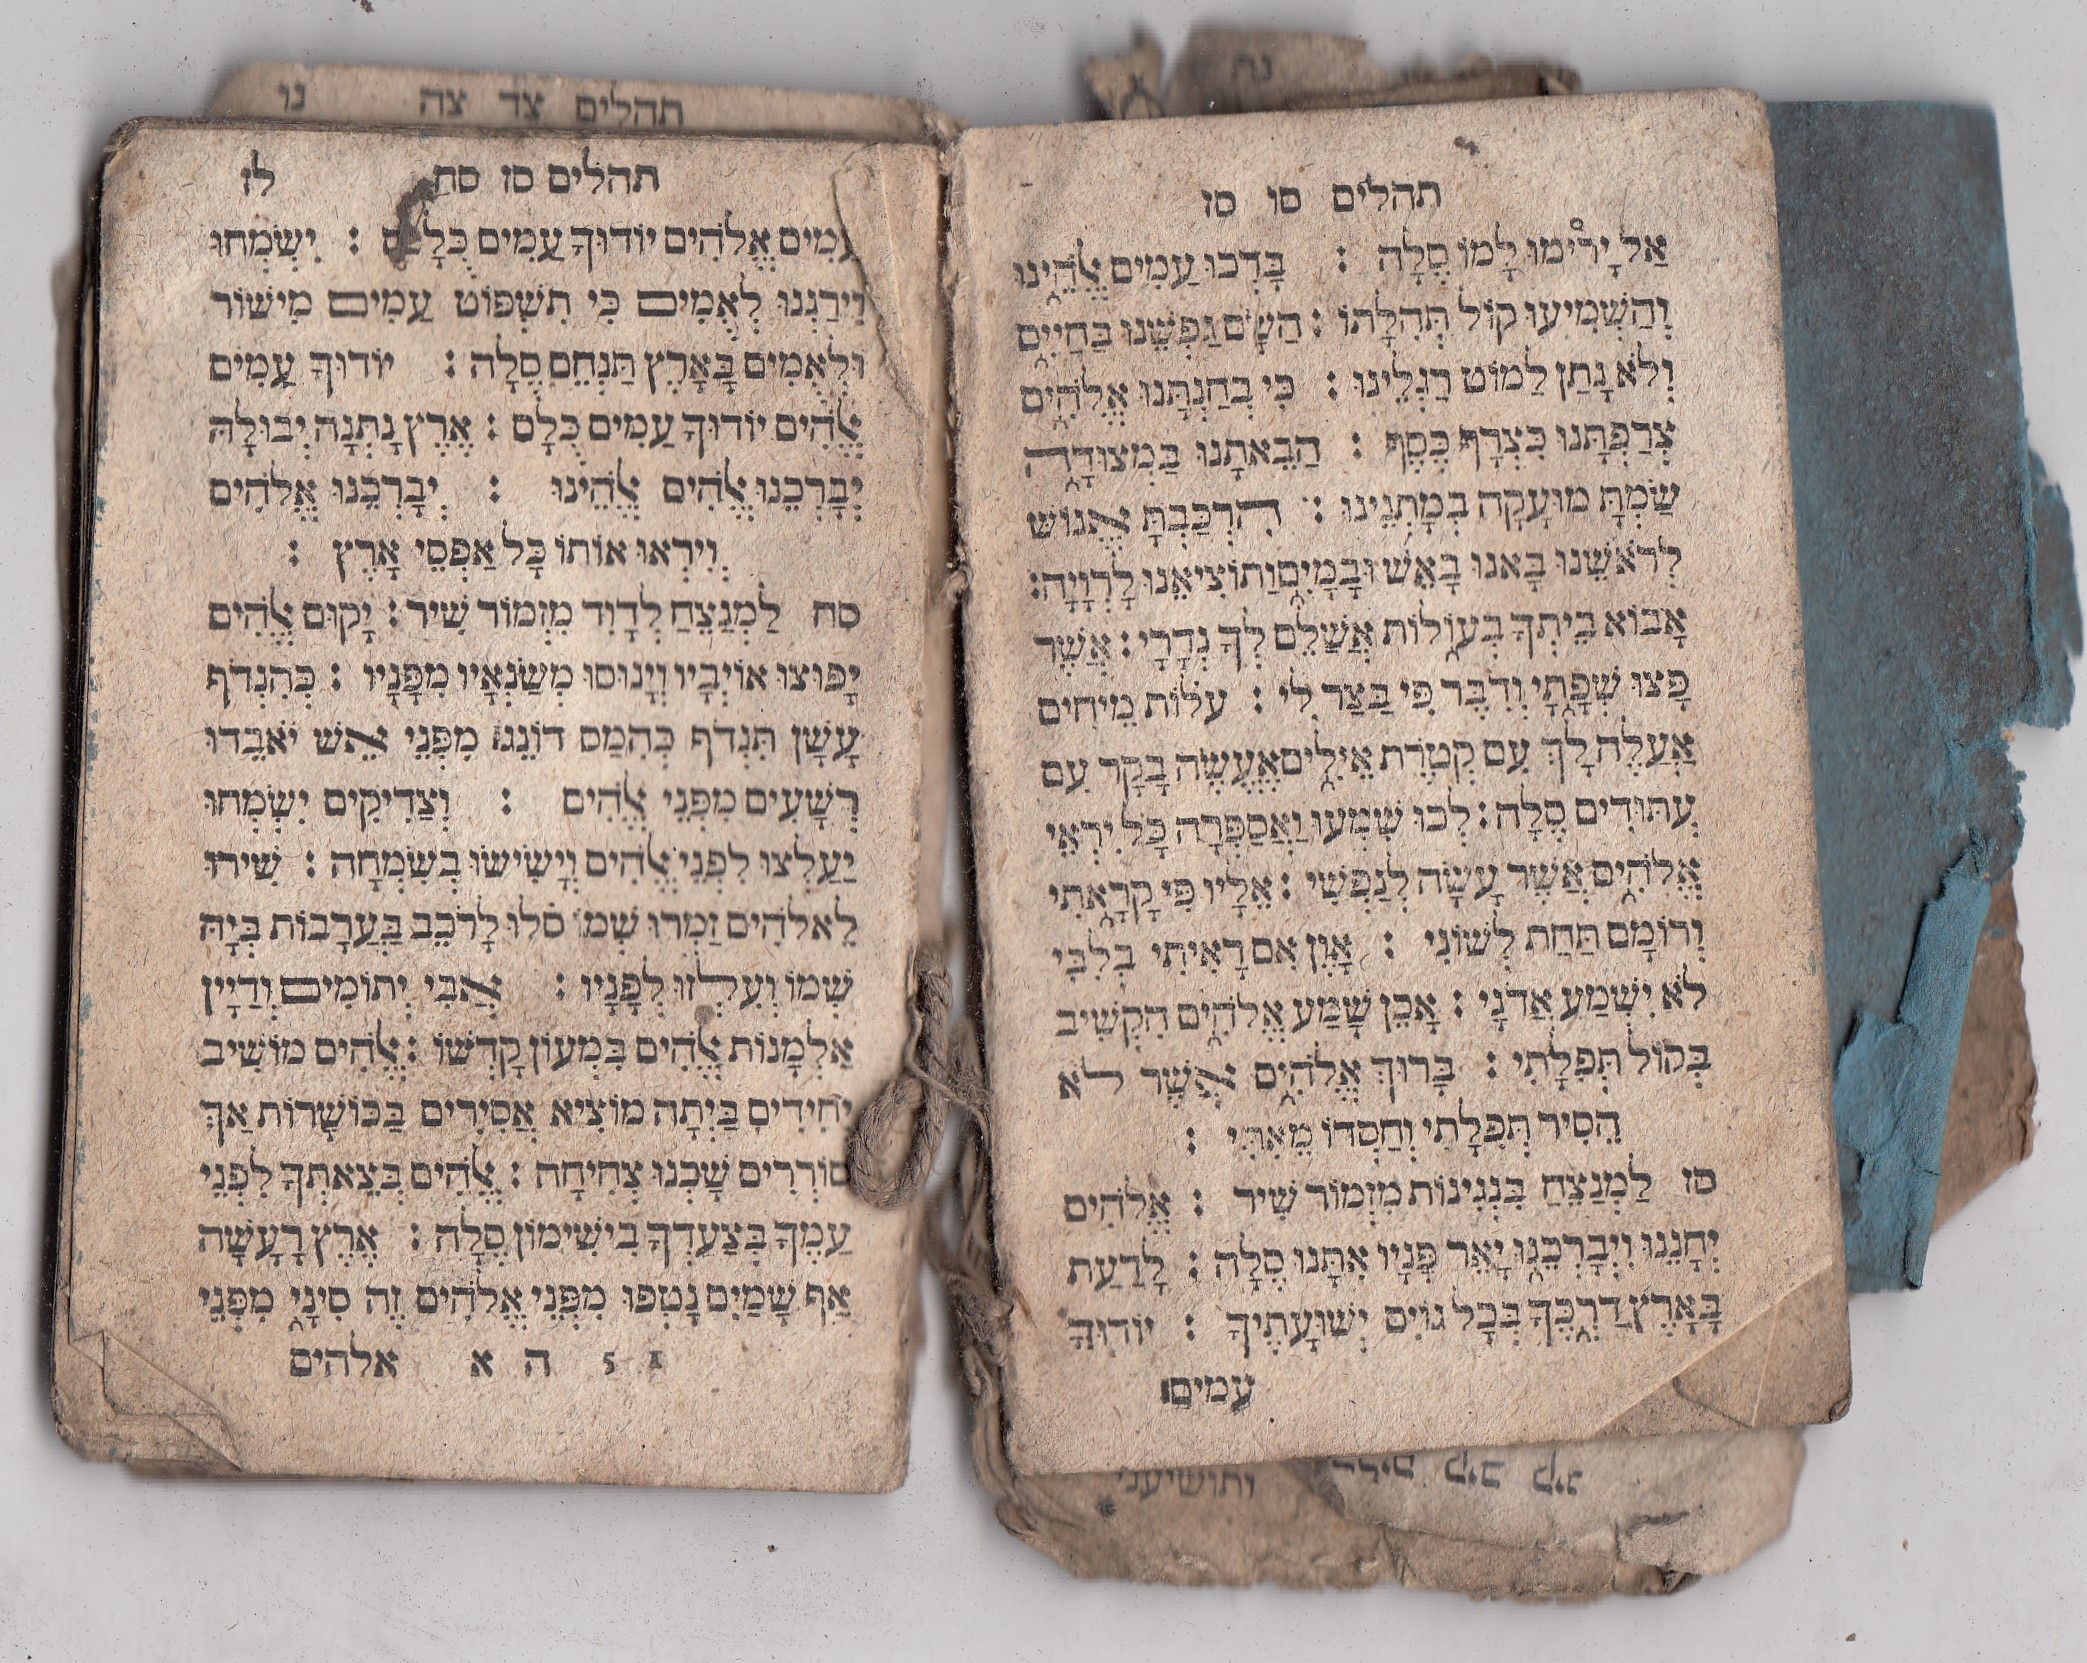 תהלים סו סז
אַל יָרִימוּ לָמוֹ סֶלָה : בָּרְכוּ עַמִּים אֱלֹהֵינוּ
וְהַשְׁמִיעוּ קוֹל תְּהִלָּתוֹ : הַשָּׂם נַפְשֵׁנוּ בַּחַיִּים
וְלֹא נָתַן לַמּוֹט רַגְלֵינוּ : כִּי בְחַנְתָּנוּ אֱלֹהִים
צְרַפְתָּנוּ כִּצְרָף כָּסֶף : הֲבֵאתָנוּ בַמְּצוּדָה
שַׂמְתָּ מוּעָקָה בְמָתְנֵינוּ : הִרְכַּבְתָּ אֱנוֹשׁ
לְרֹאשֵׁנוּ בָּאנוּ בָאֵשׁ וּבַמַּיִם וַתּוֹצִיאֵנוּ לָרְוָיָה :
אָבוֹא בֵיתְךָ בְעוֹלוֹת אֲשַׁלֵּם לְךָ נְדָרָי : אֲשֶׁר
פָּצוּ שְׂפָתָי וְדִבֶּר פִּי בַּצַּר לִי : עֹלוֹת מֵיחִים
אַעֲלֶה לָּךְ עִם קְטֹרֶת אֵילִים אֶעֱשֶׂה בָקָר עִם
עַתּוּדִים סֶלָה : לְכוּ שִׁמְעוּ וַאֲסַפְּרָה כָּל יִרְאֵי
אֱלֹהִים אֲשֶׁר עָשָׂה לְנַפְשִׁי : אֵלָיו פִּי קָרָאתִי
וְרוֹמַם תַּחַת לְשׁוֹנִי : אָוֶן אִם רָאִיתִי בְלִבִּי
לֹא יִשְׁמַע אֲדֹנָי : אָכֵן שָׁמַע אֱלֹהִים הִקְשִׁיב
בְּקוֹל תְּפִלָּתִי : בָּרוּךְ אֱלֹהִים אֲשֶׁר לֹא
הֵסִיר תְּפִלָּתִי וְחַסְדּוֹ מֵאִתִּי :
סז לַמְנַצֵּחַ בִּנְגִינוֹת מִזְמוֹר שִׁיר : אֱלֹהִים
יְחָנֵּנוּ וִיבָרְכֵנוּ יָאֵר פָּנָיו אִתָּנוּ סֶלָה : לָדַעַת
בָּאָרֶץ דַּרְכֶּךָ בְּכָל גּוֹיִם יְשׁוּעָתֶיךָ : יוֹדוּךָ
עמים
תהלים צד צה נו
תהלים סז סח לז
עַמִּים אֱלֹהִים יוֹדוּךָ עַמִּים כֻּלָּם : יִשְׂמְחוּ
וִירַנְּנוּ לְאֻמִּים כִּי תִשְׁפּוֹט עַמִּים מִישׁוֹר
וּלְאֻמִּים בָּאָרֶץ תַּנְחֵם סֶלָה : יוֹדוּךָ עַמִּים
אֱלֹהִים יוֹדוּךָ עַמִּים כֻּלָּם : אֶרֶץ נָתְנָה יְבוּלָהּ
יְבָרְכֵנוּ אֱלֹהִים אֱלֹהֵינוּ : יְבָרְכֵנוּ אֱלֹהִים
וְיִרְאוּ אוֹתוֹ כָּל אַפְסֵי אָרֶץ :
סח לַמְנַצֵּחַ לְדָוִד מִזְמוֹר שִׁיר : יָקוּם אֱלֹהִים
יָפוּצוּ אוֹיְבָיו וְיָנוּסוּ מְשַׂנְאָיו מִפָּנָיו : כְּהִנְדֹּף
עָשָׁן תִּנְדֹּף כְּהִמֵּס דּוֹנַג מִפְּנֵי אֵשׁ יֹאבְדוּ
רְשָׁעִים מִפְּנֵי אֱלֹהִים : וְצַדִּיקִים יִשְׂמְחוּ
יַעַלְצוּ לִפְנֵי אֱלֹהִים וְיָשִׂישׂוּ בְשִׂמְחָה : שִׁירוּ
לֵאלֹהִים זַמְּרוּ שְׁמוֹ סֹלּוּ לָרֹכֵב בָּעֲרָבוֹת בְּיָהּ
שְׁמוֹ וְעִלְזוּ לְפָנָיו : אֲבִי יְתוֹמִים וְדַיַּין
אַלְמָנוֹת אֱלֹהִים בִּמְעוֹן קָדְשׁוֹ : אֱלֹהִים מוֹשִׁיב
יְחִידִים בַּיְתָה מוֹצִיא אֲסִירִים בַּכּוֹשָׁרוֹת אַךְ
סוֹרְרִים שָׁכְנוּ צְחִיחָה : אֱלֹהִים בְּצֵאתְךָ לִפְנֵי
עַמֶּךָ בְּצַעְדְּךָ בִישִׁימוֹן סֶלָה : אֶרֶץ רָעָשָׁה
אַף שָׁמַיִם נָטְפוּ מִפְּנֵי אֱלֹהִים זֶה סִינַי מִפְּנֵי
1 5 ה א אלהים